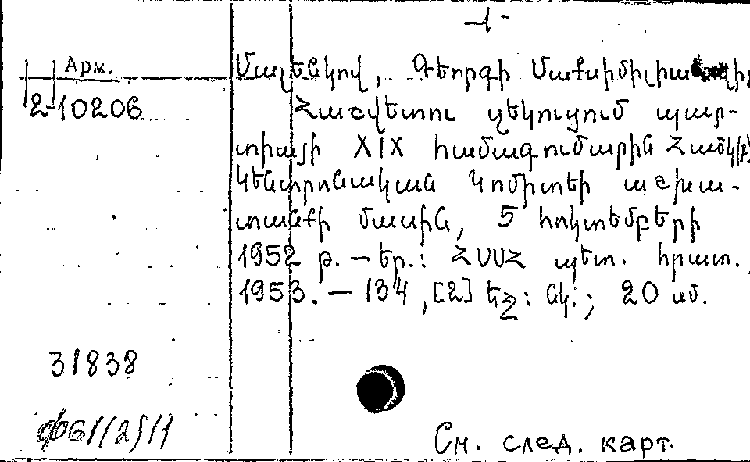 -1-
Арм.
2-10206
Մալենկով, Գեորգի
Հաշվետու զեկուցում պար-
տիայի XIX համագումարին
Կենտրոնական Կոմիտեի աշխա-
տանքի մասին, 5 հոկտեմբերի
1952 թ. — Եր.: ՀՍՍՀ պետ. հրատ.,
1953. — 134, [2] եջ: նկ.; 20 սմ.
31838
См. след. карт.